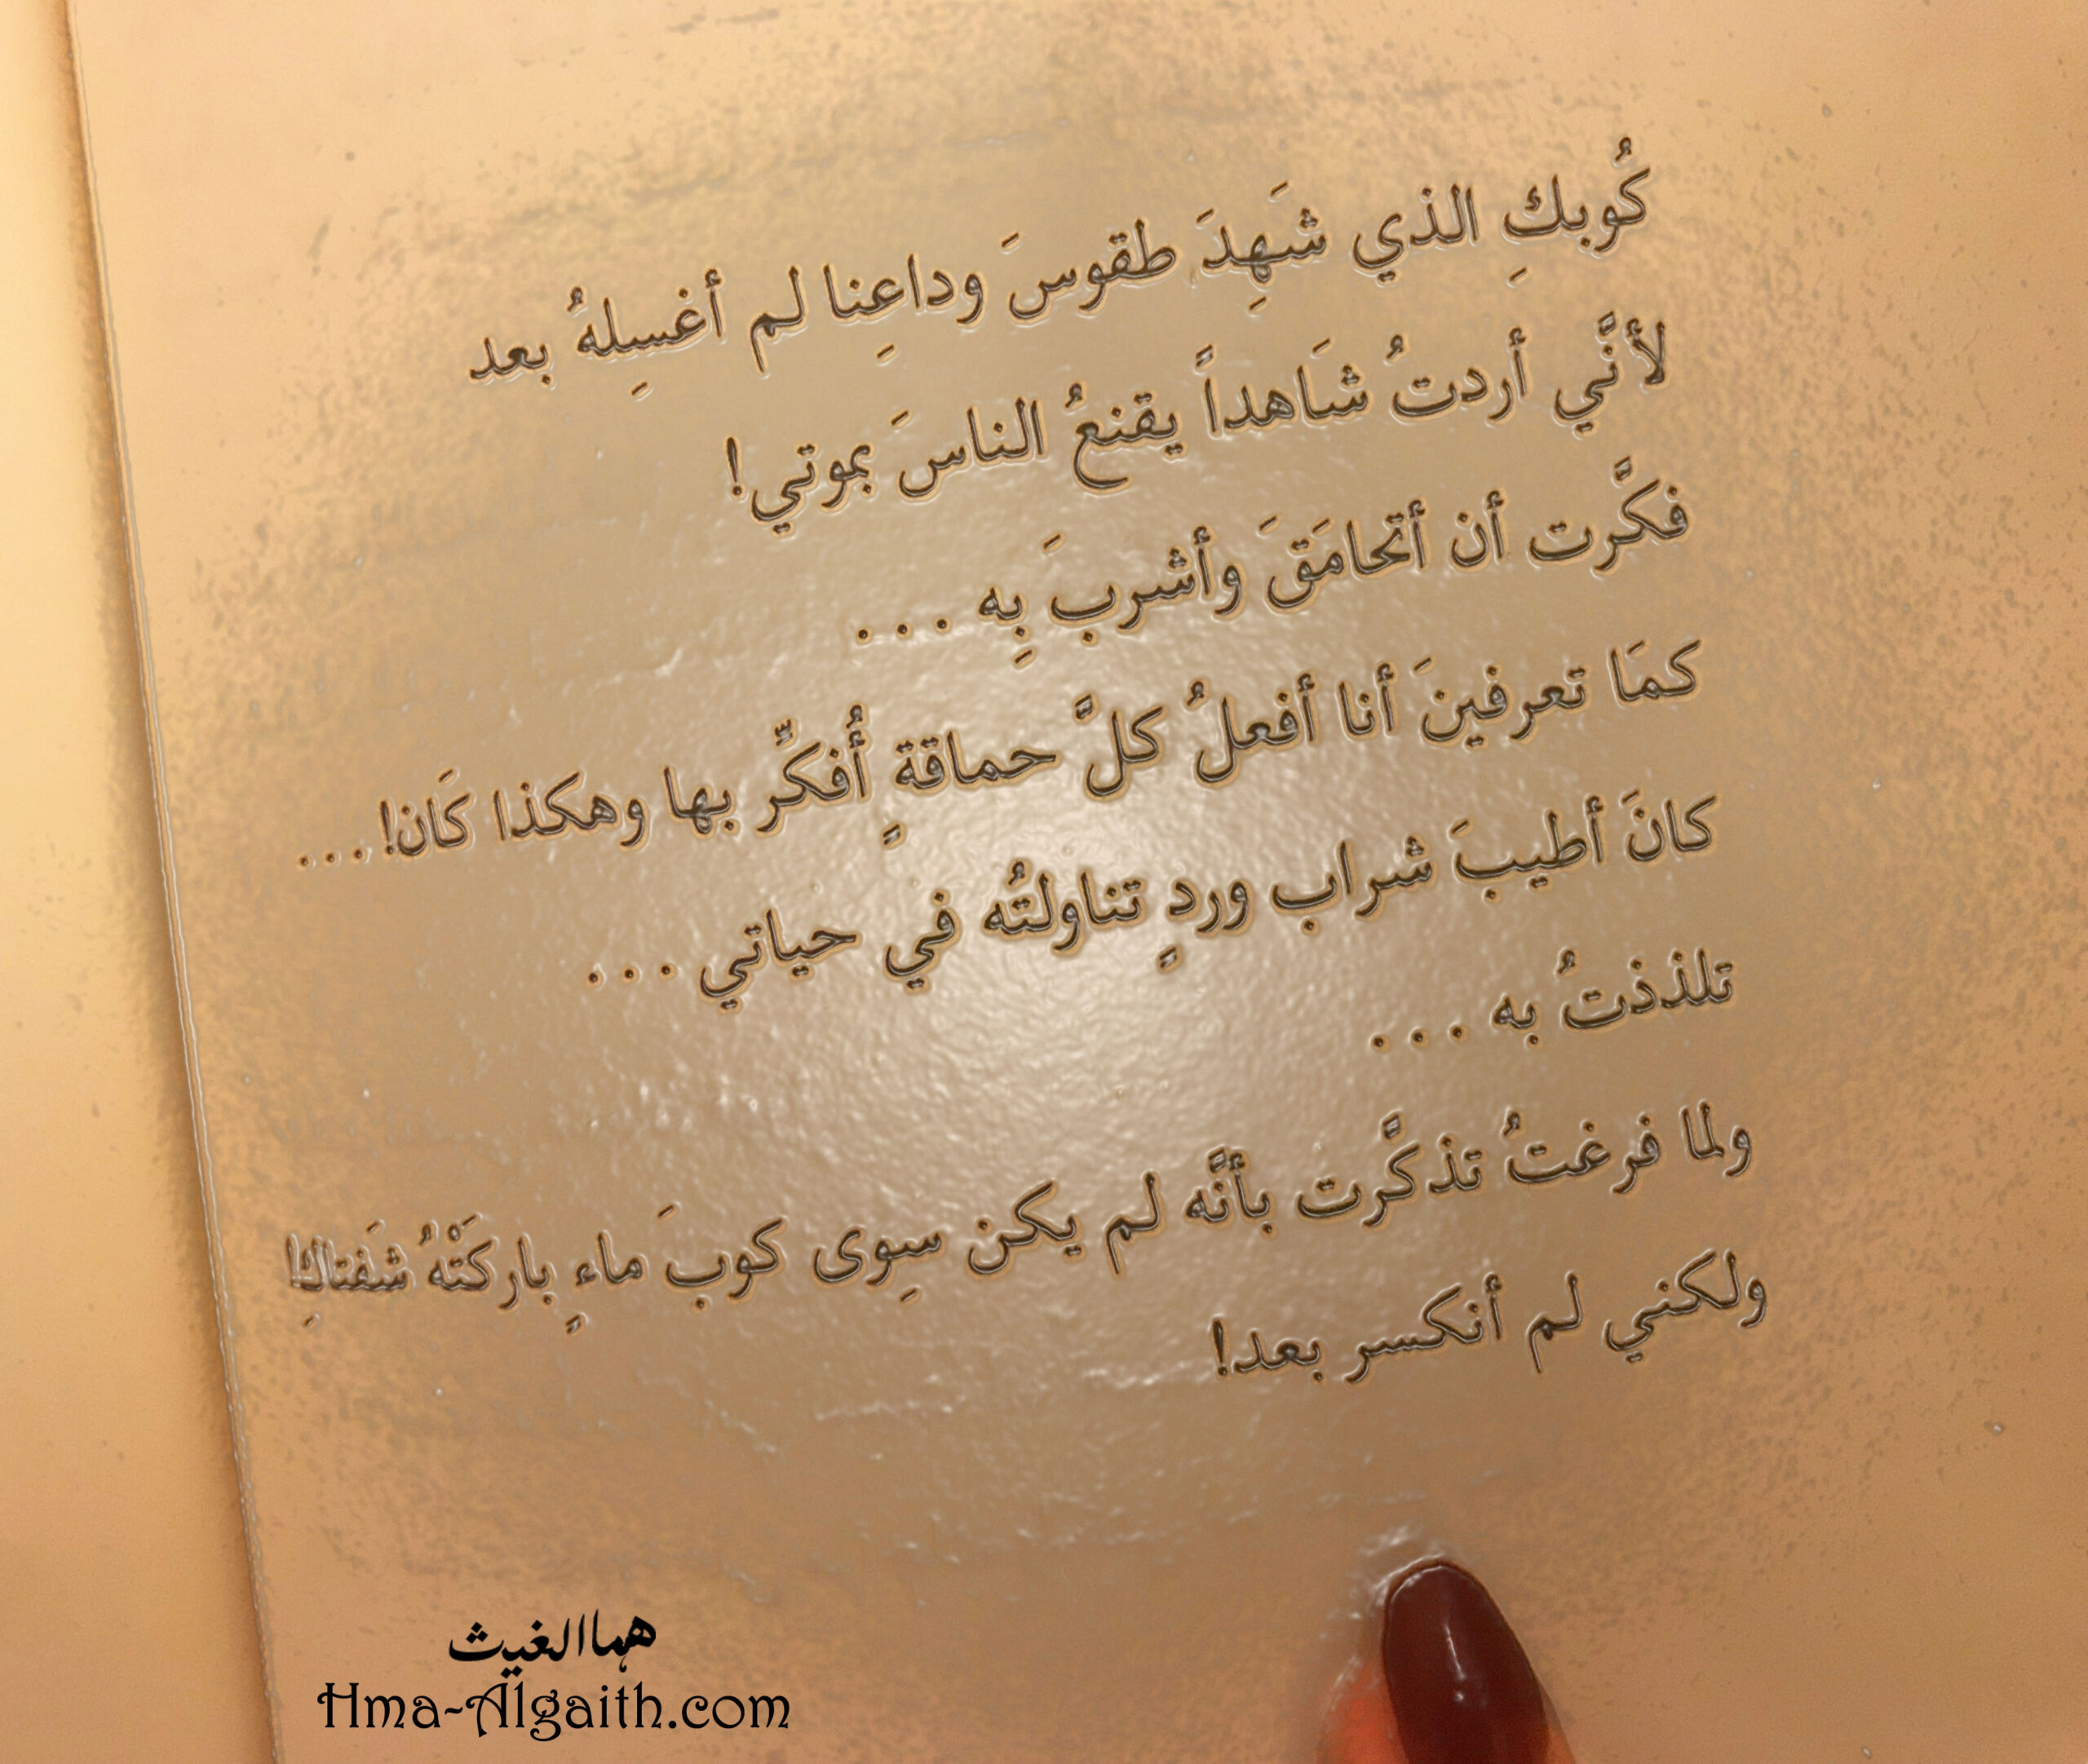 كُوبكِ الذي شَهِدَ طقوسَ وداعِنا لم أغسِلهُ بعد
لأنَّني أردتُ شَاهداً يقنعُ الناسَ بموتي!
فكَّرت أن أتحامَقَ وأشربَ بِه ...
كمَا تعرفينَ أنا أفعلُ كلَّ حماقةٍ أُفكِّر بها وهكذا كَان!...
كانَ أطيبَ شراب وردٍ تناولتُه في حياتي ...
تلذذتُ به ...
ولما فرغتُ تذكَّرت بأنَّه لم يكن سِوى كوبَ ماءٍ باركَتْهُ شَفتاكِ!
ولكنني لم أنكسر بعد!
هماالغيث
Hma-Algaith.com